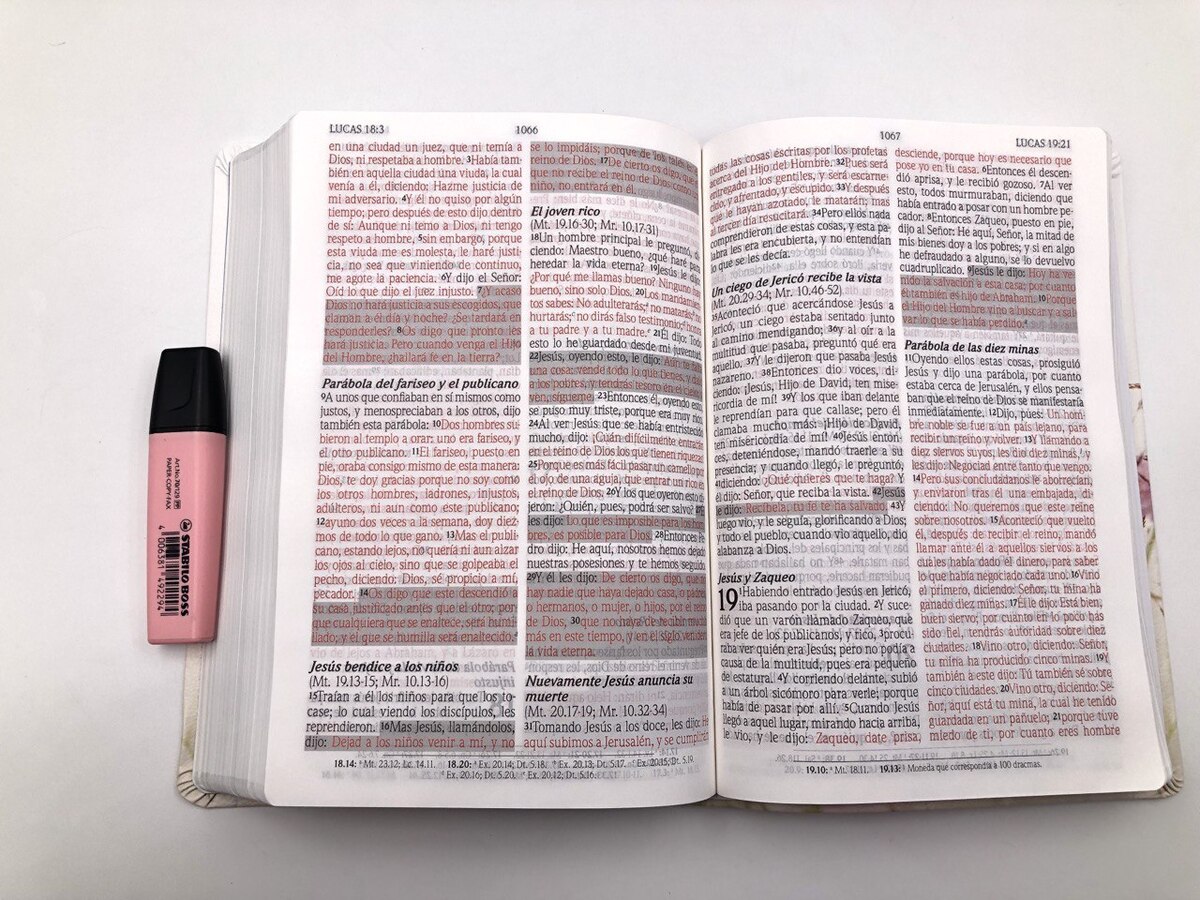 LUCAS 18:3
1066
en una ciudad un juez, que ni temía a
Dios, ni respetaba a hombre. 3Había tam-
bién en aquella ciudad una viuda, la cual
venía a él, diciendo: Hazme justicia de
mi adversario. 4Y él no quiso por algún
tiempo; pero después de esto dijo dentro
de sí: Aunque ni temo a Dios, ni tengo
respeto a hombre, 5sin embargo, porque
esta viuda me es molesta, le haré justi-
cia, no sea que viniendo de continuo,
me agote la paciencia. 6Y dijo el Señor:
Oíd lo que dijo el juez injusto. 7¿Y acaso
Dios no hará justicia a sus escogidos, que
claman a él día y noche? ¿Se tardará en
responderles? 8Os digo que pronto les
hará justicia. Pero cuando venga el Hijo
del Hombre, ¿hallará fe en la tierra?
Parábola del fariseo y el publicano
9A unos que confiaban en sí mismos como
justos, y menospreciaban a los otros, dijo
también esta parábola: 10Dos hombres su-
bieron al templo a orar: uno era fariseo, y
el otro publicano. 11El fariseo, puesto en
pie, oraba consigo mismo de esta manera:
Dios, te doy gracias porque no soy como
los otros hombres, ladrones, injustos,
adúlteros, ni aun como este publicano;
12ayuno dos veces a la semana, doy diez-
mos de todo lo que gano. 13Mas el publi-
cano, estando lejos, no quería ni aun alzar
los ojos al cielo, sino que se golpeaba el
pecho, diciendo: Dios, sé propicio a mí,
pecador. 14Os digo que este descendió a
su casa justificado antes que el otro; por-
que cualquiera que se enaltece, será humi-
llado; y el que se humilla será enaltecido.a
Jesús bendice a los niños
(Mt. 19.13-15; Mr. 10.13-16)
15Traían a él los niños para que los to-
case; lo cual viendo los discípulos, les
reprendieron. 16Mas Jesús, llamándolos,
dijo: Dejad a los niños venir a mí, y no
se lo impidáis; porque de los tales es el
reino de Dios. 17De cierto os digo, que el
que no recibe el reino de Dios como un
niño, no entrará en él.
El joven rico
(Mt. 19.16-30; Mr. 10.17-31)
18Un hombre principal le preguntó, di-
ciendo: Maestro bueno, ¿qué haré para
heredar la vida eterna? 19Jesús le dijo:
¿Por qué me llamas bueno? Ninguno hay
bueno, sino solo Dios. 20Los mandamien-
tos sabes: No adulterarás; no matarás; no
hurtarás; no dirás falso testimonio; honra
a tu padre y a tu madre. 21Él dijo: Todo
esto lo he guardado desde mi juventud.
22Jesús, oyendo esto, le dijo: Aún te falta
una cosa: vende todo lo que tienes, y da-
lo a los pobres, y tendrás tesoro en el cielo;
ven, sígueme. 23Entonces él, oyendo esto,
se puso muy triste, porque era muy rico.
24Al ver Jesús que se había entristecido
mucho, dijo: ¡Cuán difícilmente entrarán
en el reino de Dios los que tienen riquezas!
25Porque es más fácil pasar un camello por
el ojo de una aguja, que entrar un rico en
el reino de Dios. 26Y los que oyeron esto di-
jeron: ¿Quién, pues, podrá ser salvo? 27Él
les dijo: Lo que es imposible para los hom-
bres, es posible para Dios. 28Entonces Pe-
dro dijo: He aquí, nosotros hemos dejado
nuestras posesiones y te hemos seguido.
29Y él les dijo: De cierto os digo, que no
hay nadie que haya dejado casa, o padres,
o hermanos, o mujer, o hijos, por el reino
de Dios, 30que no haya de recibir mucho
más en este tiempo, y en el siglo venidero
la vida eterna.
Nuevamente Jesús anuncia su
muerte
(Mt. 20.17-19; Mr. 10.32-34)
31Tomando Jesús a los doce, les dijo: He
aquí subimos a Jerusalén, y se cumplirán
18.14: a Mt. 23.12; Lc. 14.11. 18.20: Ex. 20.14; Dt. 5.18. Ex. 20.13; Dt. 5.17. Ex. 20.15; Dt. 5.19.
Ex. 20.16; Dt. 5.20. Ex. 20.12; Dt. 5.16.
1067
LUCAS 19:21
todas las cosas escritas por los profetas
acerca del Hijo del Hombre. 32Pues será
entregado a los gentiles, y será escarne-
cido, y afrentado, y escupido. 33Y después
que le hayan azotado, le matarán; mas
al tercer día resucitará. 34Pero ellos nada
comprendieron de estas cosas, y esta pa-
labra les era encubierta, y no entendían
lo que se les decía.
Un ciego de Jericó recibe la vista
(Mt. 20.29-34; Mr. 10.46-52)
35Aconteció que acercándose Jesús a
Jericó, un ciego estaba sentado junto
al camino mendigando; 36y al oír a la
multitud que pasaba, preguntó qué era
aquello. 37Y le dijeron que pasaba Jesús
nazareno. 38Entonces dio voces, di-
ciendo: ¡Jesús, Hijo de David, ten mise-
ricordia de mí! 39Y los que iban delante
le reprendían para que callase; pero él
clamaba mucho más: ¡Hijo de David,
ten misericordia de mí! 40Jesús enton-
ces, deteniéndose, mandó traerle a su
presencia; y cuando llegó, le preguntó,
41diciendo: ¿Qué quieres que te haga? Y
él dijo: Señor, que reciba la vista. 42Jesús
le dijo: Recíbela, tu fe te ha salvado. 43Y
luego vio, y le seguía, glorificando a Dios;
y todo el pueblo, cuando vio aquello, dio
alabanza a Dios.
Jesús y Zaqueo
19 1Habiendo entrado Jesús en Jericó,
iba pasando por la ciudad. 2Y suce-
dió que un varón llamado Zaqueo, que
era jefe de los publicanos, y rico, 3procu-
raba ver quién era Jesús; pero no podía a
causa de la multitud, pues era pequeño
de estatura. 4Y corriendo delante, subió
a un árbol sicómoro para verle; porque
había de pasar por allí. 5Cuando Jesús
llegó a aquel lugar, mirando hacia arriba,
le vio, y le dijo: Zaqueo, date prisa,
desciende, porque hoy es necesario que
pose yo en tu casa. 6Entonces él descen-
dió aprisa, y le recibió gozoso. 7Al ver
esto, todos murmuraban, diciendo que
había entrado a posar con un hombre pe-
cador. 8Entonces Zaqueo, puesto en pie,
dijo al Señor: He aquí, Señor, la mitad de
mis bienes doy a los pobres; y si en algo
he defraudado a alguno, se lo devuelvo
cuadruplicado. 9Jesús le dijo: Hoy ha ve-
nido la salvación a esta casa; por cuanto
él también es hijo de Abraham. 10Porque
el Hijo del Hombre vino a buscar y a sal-
var lo que se había perdido.a
Parábola de las diez minas
11Oyendo ellos estas cosas, prosiguió
Jesús y dijo una parábola, por cuanto
estaba cerca de Jerusalén, y ellos pensa-
ban que el reino de Dios se manifestaría
inmediatamente. 12Dijo, pues: Un hom-
bre noble se fue a un país lejano, para
recibir un reino y volver. 13Y llamando a
diez siervos suyos, les dio diez minas,1 y
les dijo: Negociad entre tanto que vengo.
14Pero sus conciudadanos le aborrecían,
y enviaron tras él una embajada, di-
ciendo: No queremos que este reine
sobre nosotros. 15Aconteció que vuelto
él, después de recibir el reino, mandó
llamar ante él a aquellos siervos a los
cuales había dado el dinero, para saber
lo que había negociado cada uno. 16Vino
el primero, diciendo: Señor, tu mina ha
ganado diez minas. 17Él le dijo: Está bien,
buen siervo; por cuanto en lo poco has
sido fiel, tendrás autoridad sobre diez
ciudades. 18Vino otro, diciendo: Señor,
tu mina ha producido cinco minas. 19Y
también a este dijo: Tú también sé sobre
cinco ciudades. 20Vino otro, diciendo: Se-
ñor, aquí está tu mina, la cual he tenido
guardada en un pañuelo; 21porque tuve
miedo de ti, por cuanto eres hombre
19.10: a Mt. 18.11. 19.13: 1 Moneda que correspondía a 100 dracmas.
Art.No.70/129
PAPER-COPY-FAX
STABILO BOSS
4 006381 492294